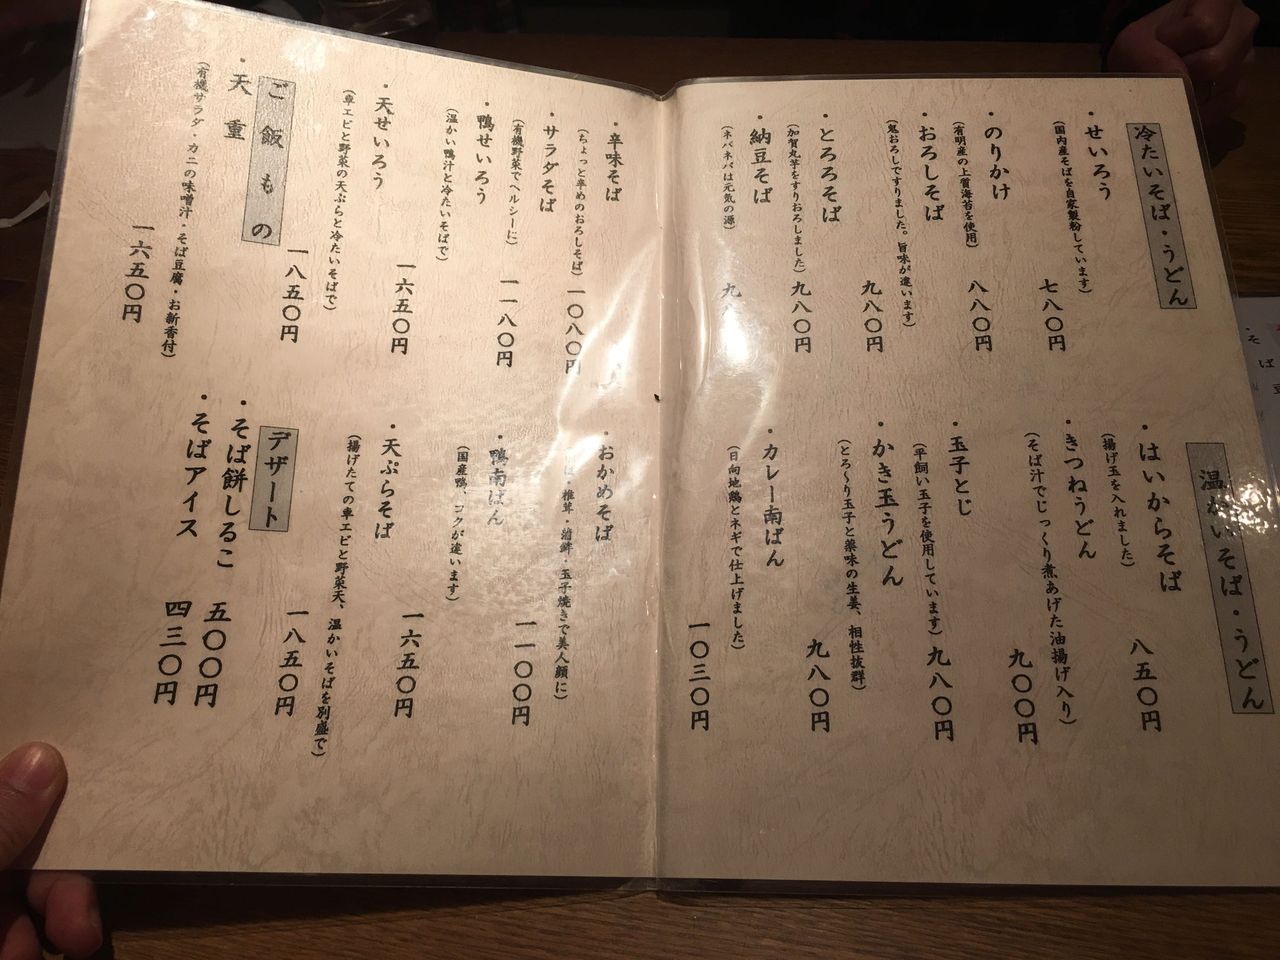 冷たいそば・うどん
・せいろう
(国内産そばを自家製粉しています)
七八〇円
・のりかけ
(有明産の上質海苔を使用)
八八〇円
・おろしそば
(鬼おろしですりました。旨味が違います)
九八〇円
・とろろそば
(加賀丸芋をすりおろしました)
九八〇円
・納豆そば
(ネバネバは元気の源)
九
・辛味そば
(ちょっと辛めのおろしそば)
一〇八〇円
・サラダそば
(有機野菜でヘルシーに)
一一八〇円
・鴨せいろう
(温かい鴨汁と冷たいそばで)
一六五〇円
・天せいろう
(車エビと野菜の天ぷらと冷たいそばで)
一八五〇円
ご飯もの
・天重
(有機サラダ・カニの味噌汁・そば豆腐・お新香付)
一六五〇円
温かいそば・うどん
・はいからそば
(揚げ玉を入れました)
八五〇円
・きつねうどん
(そば汁でじっくり煮あげた油揚げ入り)
九〇〇円
・玉子とじ
(平飼い玉子を使用しています)
九八〇円
・かき玉うどん
(とろ〜り玉子と薬味の生姜、相性抜群)
九八〇円
・カレー南ばん
(日向地鶏とネギで仕上げました)
一〇三〇円
・おかめそば
・椎茸・湯葉・玉子焼きで美人顔に)
一一〇〇円
・鴨南ばん
(国産鴨、コクが違います)
一六五〇円
・天ぷらそば
(揚げたての車エビと野菜天、温かいそばを別盛で)
一八五〇円
デザート
・そば餅しるこ
五〇〇円
・そばアイス
四三〇円
・そば豆